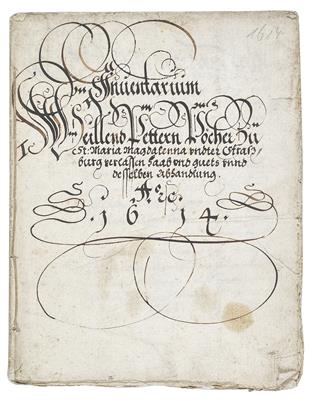 1614
Inventarium
Weillend Pettern Pocher Zu
St: Maria Magdalenna vndter Straß
burg verlassen Haab vnd guets vnnd
desselben Abhandlung.
Aō: &c:
S. 1 6 1 4. S